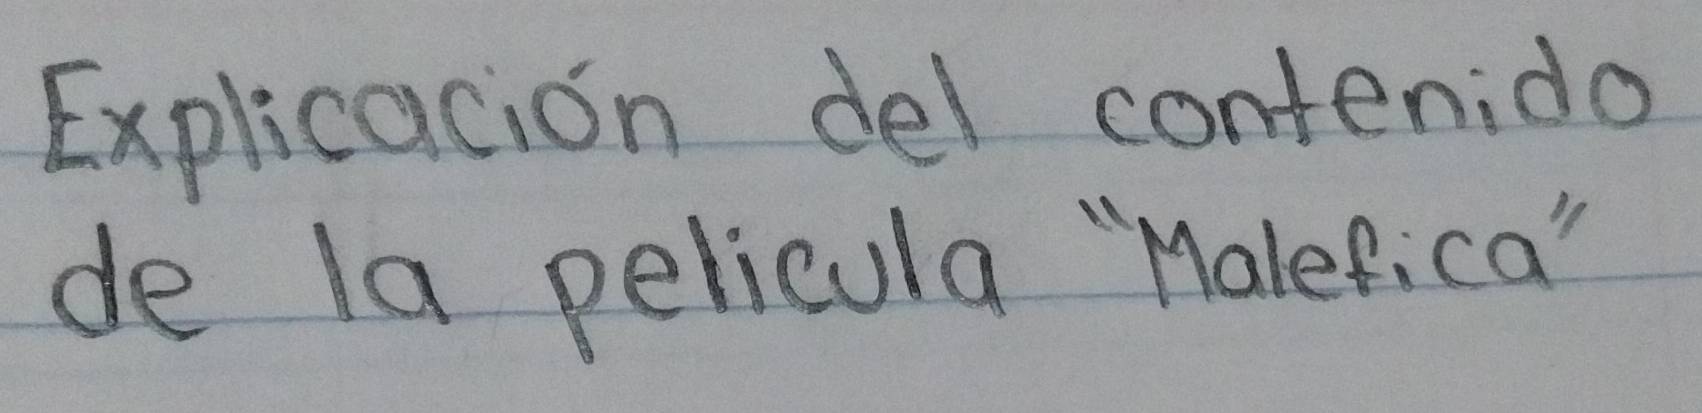 Explicación del contenido
de la pelicula "Malefica"